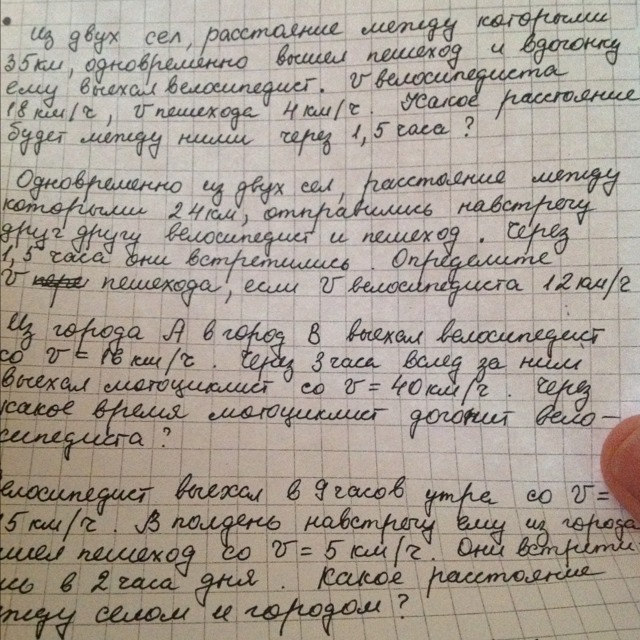 Из двух сел, расстояние между которыми
35км, одновременно вышел пешеход и вдогонку
ему выехал велосипедист. v велосипедиста
18 км/ч, v пешехода 4 км/ч. Какое расстояние
будет между ними через 1,5 часа?
Одновременно из двух сел, расстояние между
которыми 24км, отправились навстречу
друг другу велосипедист и пешеход. Через
1,5 часа они встретились. Определите
v пешехода, если v велосипедиста 12 км/ч
Из города А в город В выехал велосипедист
со v = 18 км/ч. Через 3 часа вслед за ним
выехал мотоциклист со v = 40 км/ч. Через
какое время мотоциклист догонит вело-
сипедиста?
елосипедист выехал в 9 часов утра со v =
5 км/ч. В полдень навстречу ему из города
шел пешеход со v = 5 км/ч. Они встрети-
сь в 2 часа дня. Какое расстояние
жду селом и городом?